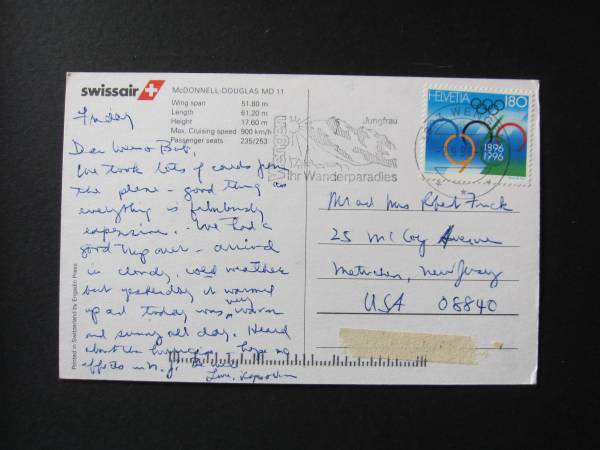 swissair
McDONNELL-DOUGLAS MD 11
Wing span 51.80 m
Length 61.20 m
Height 17.60 m
Max. Cruising speed 900 km/h
Passenger seats 235/253
Friday
Dear and Bob,
We took lots of cards from
the plane - good thing as
everything is fabulously
expensive. We had a
good trip over - arrived
in cloudy, cold weather
but yesterday it warmed
up and today was very warm
and sunny all day. Heard
about the hurricane hope no
effects in N.J.
Love,
Printed in Switzerland by Engadin Press
Wengen
Jungfrau
Ihr Wanderparadies
WENGEN
HELVETIA 180
1896
1996
Mr and Mrs Robert Frick
25 McCoy Avenue
Metuchen, New Jersey
USA 08840